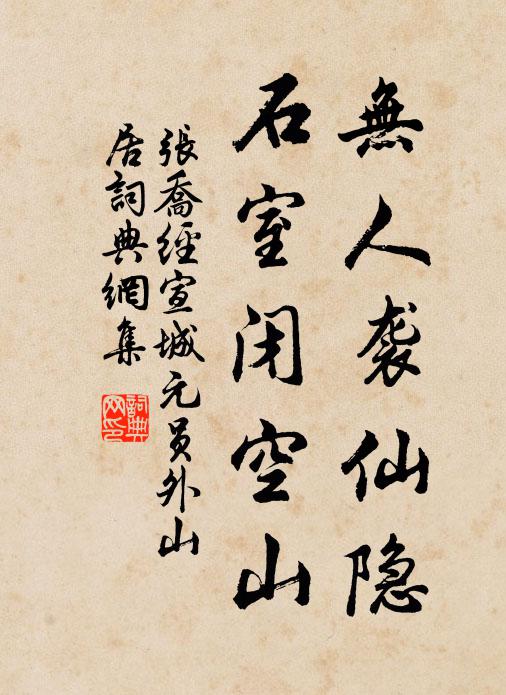 無人袭仙隐
石室闭空山
張喬經宣城元員外山
居詞典網集
詞典
网印